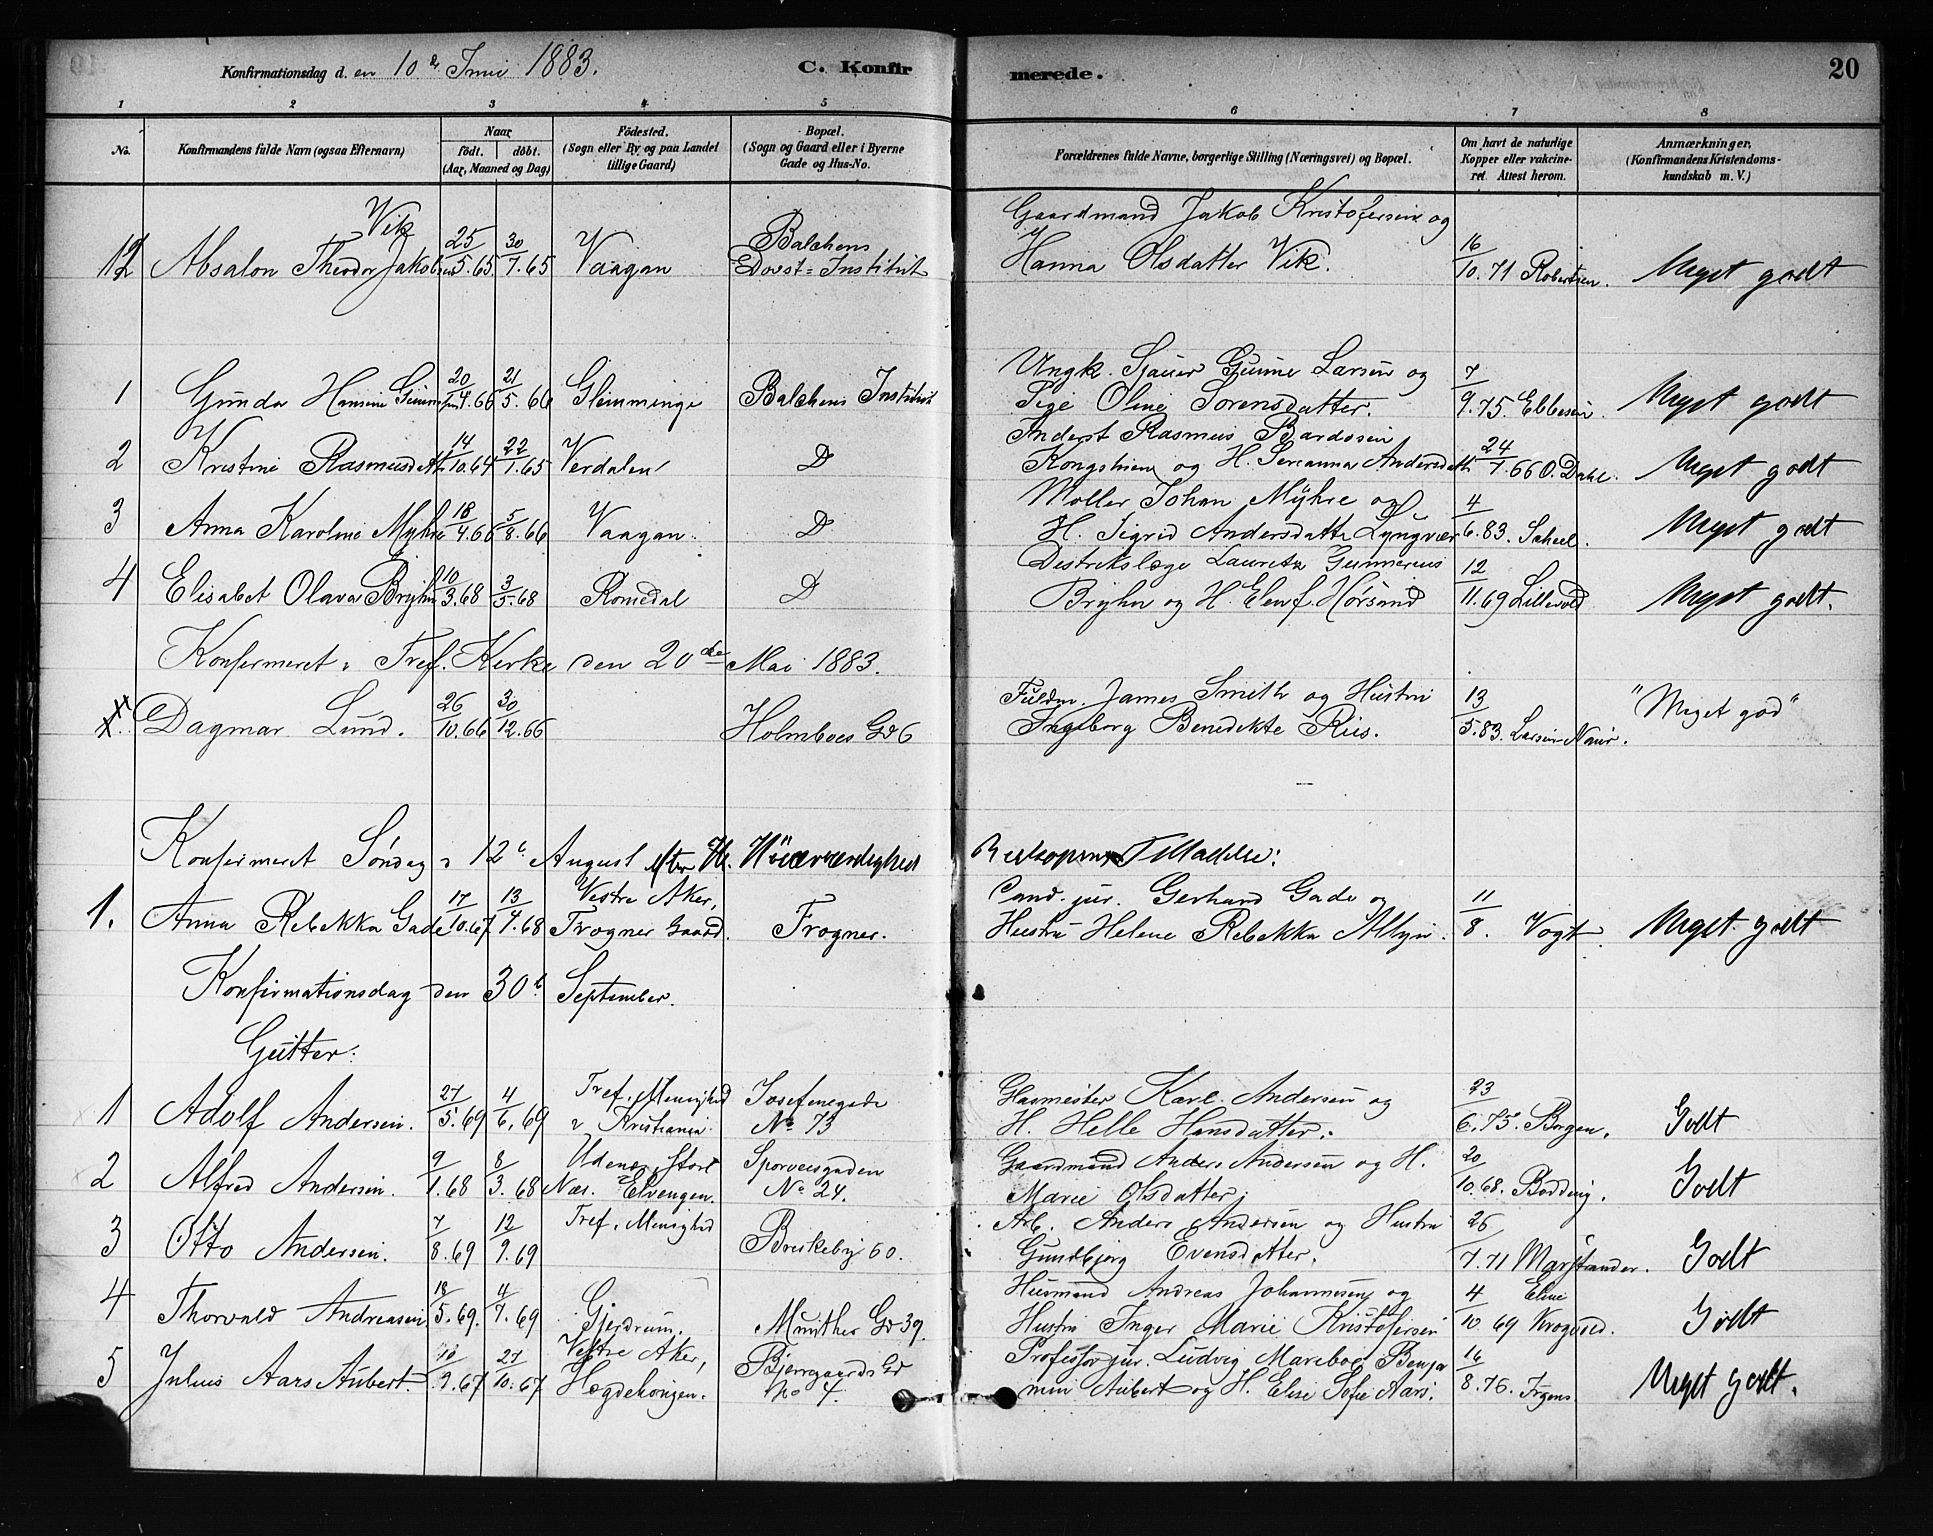 Konfirmationsdag d. en 10de Juni 1883. C. Konfirmerede. 20
1 2 3 4 5 6 7 8
No. Konfirmandens fulde Navn (ogsaa Efternavn) Naar født. døbt. (Aar, Maaned og Dag) Fødested. (Sogn eller By og paa Landet tillige Gaard) Bopæl. (Sogn og Gaard eller i Byerne Gade og Hus-No. Forældrenes fulde Navne, borgerlige Stilling (Næringsvei) og Bopæl. Om havt de naturlige Kopper eller vakcineret. Attest herom. Anmærkninger. (Konfirmandens Kristendomskundskab m. V.)
Vik Gaardmand Jakob Kristofersen og
12 Absalon Theodor Jakobsen 25/5.65 30/7.65 Vaagan Balchens Døvst=Institut Hanna Olsdatter Vik. 16/10.71 Robertsen. Meget godt
Ungk. Sjauer Gunne Larsen og
1 Gunda Hansine Gunnesen 20/4.66 21/5.66 Glemminge Balchens Institut Pige Oline Sorensdatter. 7/9.75. Ebbesen. Meget godt
Inderst Rasmus Bardosen
2 Kristine Rasmusdatter 14/10.64 22/1.65 Verdalen D Kongshiem og H. Sereanna Andersdatter 24/7.66 O. Dahl. Meget godt
Møller Johan Myhre og
3 Anna Karoline Myhre 18/4.66 5/8.66 Vaagan. D H. Sigrid Andersdatter Lyngvær 4/6.83. Scheel. Meget godt
Destrikslæge Lauretz Gunnerius
4 Elisabet Olava Bryhn 10/3.68 3/5.68 Romedal D Bryhn og H. Elen f. Hørsand 12/11.69 Lillevold Meget godt.
Konfermeret i Tref. Kerke den 20de Mai 1883.
Fuldm. James Smith og Hustru
Dagmar Lund. 26/10.66 30/12.66 Holmboes Gd 6 Ingeborg Benedikte Riis. 13/5.83. Larsen Naur. "Meget god"
Konfermeret Søndag d. 12te August efter H. Høiærværdighed Biskopens Tilladelse:
Vestre Aker, Cand. jur. Gerhard Gade og
1. Anna Rebekka Gade 17/10.67 13/4.68 Frogner Gaard. Frogner. Hustru Helene Rebekka Allyn. 11/8. Vogt. Meget godt
Konfirmationsdag den 30te September.
Gutter:
Tref. Menighed Josefinegade Glarmester Karl Andersen og
1 Adolf Andersen. 27/5.69 4/6.69 i Kristiania. No 73 H. Helle Hansdatter. 23/6.75. Borgen. Godt
Udenæs, Stort Sporveisgaden Gaardmand Anders Andersen og H.
2 Alfred Andersen. 9/1.68 8/3.68 Næs. Elvengen. No 24. Marie Olsdatter 20/10.68. Bodding. Godt
Tref. Menighed Arb. Anders Andersen og Hustru
3 Otto Andersen. 7/8.69 12/9.69 Briskeby 60. Gundbjørg Evensdatter. 26/7.71 Marstrander. Godt
Husmand Andreas Johannesen og
4 Thorvald Andreasen. 18/5.69. 4/7.69 Gjerdrum. Munthes Gd 39. Hustru Inger Marie Kristofersen 4/10 69 Eline Krogsed. Godt
Vestre Aker, Bjerregaards Gd Professor jur. Ludvig Mareboe Benja
5 Julius Aars Aubert. 18/9.67 27/10.67 Hægdehougen. No 4. min Aubert og H. Elise Sofie Aars. 16/8.76. Irgens. Meget godt.